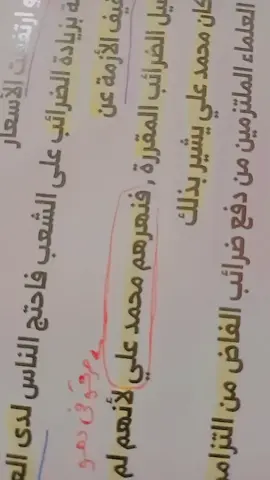 و ارتفعت الأسعار
بزيادة الضرائب على الشعب فاحتج الناس لدى
الأزمة عن
الضرائب المقررة ، فنهرهم محمد علي لأنهم لم
كان محمد علي يشير بذلك
العلماء الملتزمين من دفع ضرائب الفاض من